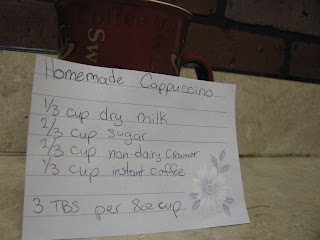 Coffee
Sw
Sw
Homemade Cappuccino
1/3 cup dry milk
2/3 cup sugar
2/3 cup non-dairy creamer
1/3 cup instant coffee
3 TBS per 8oz cup